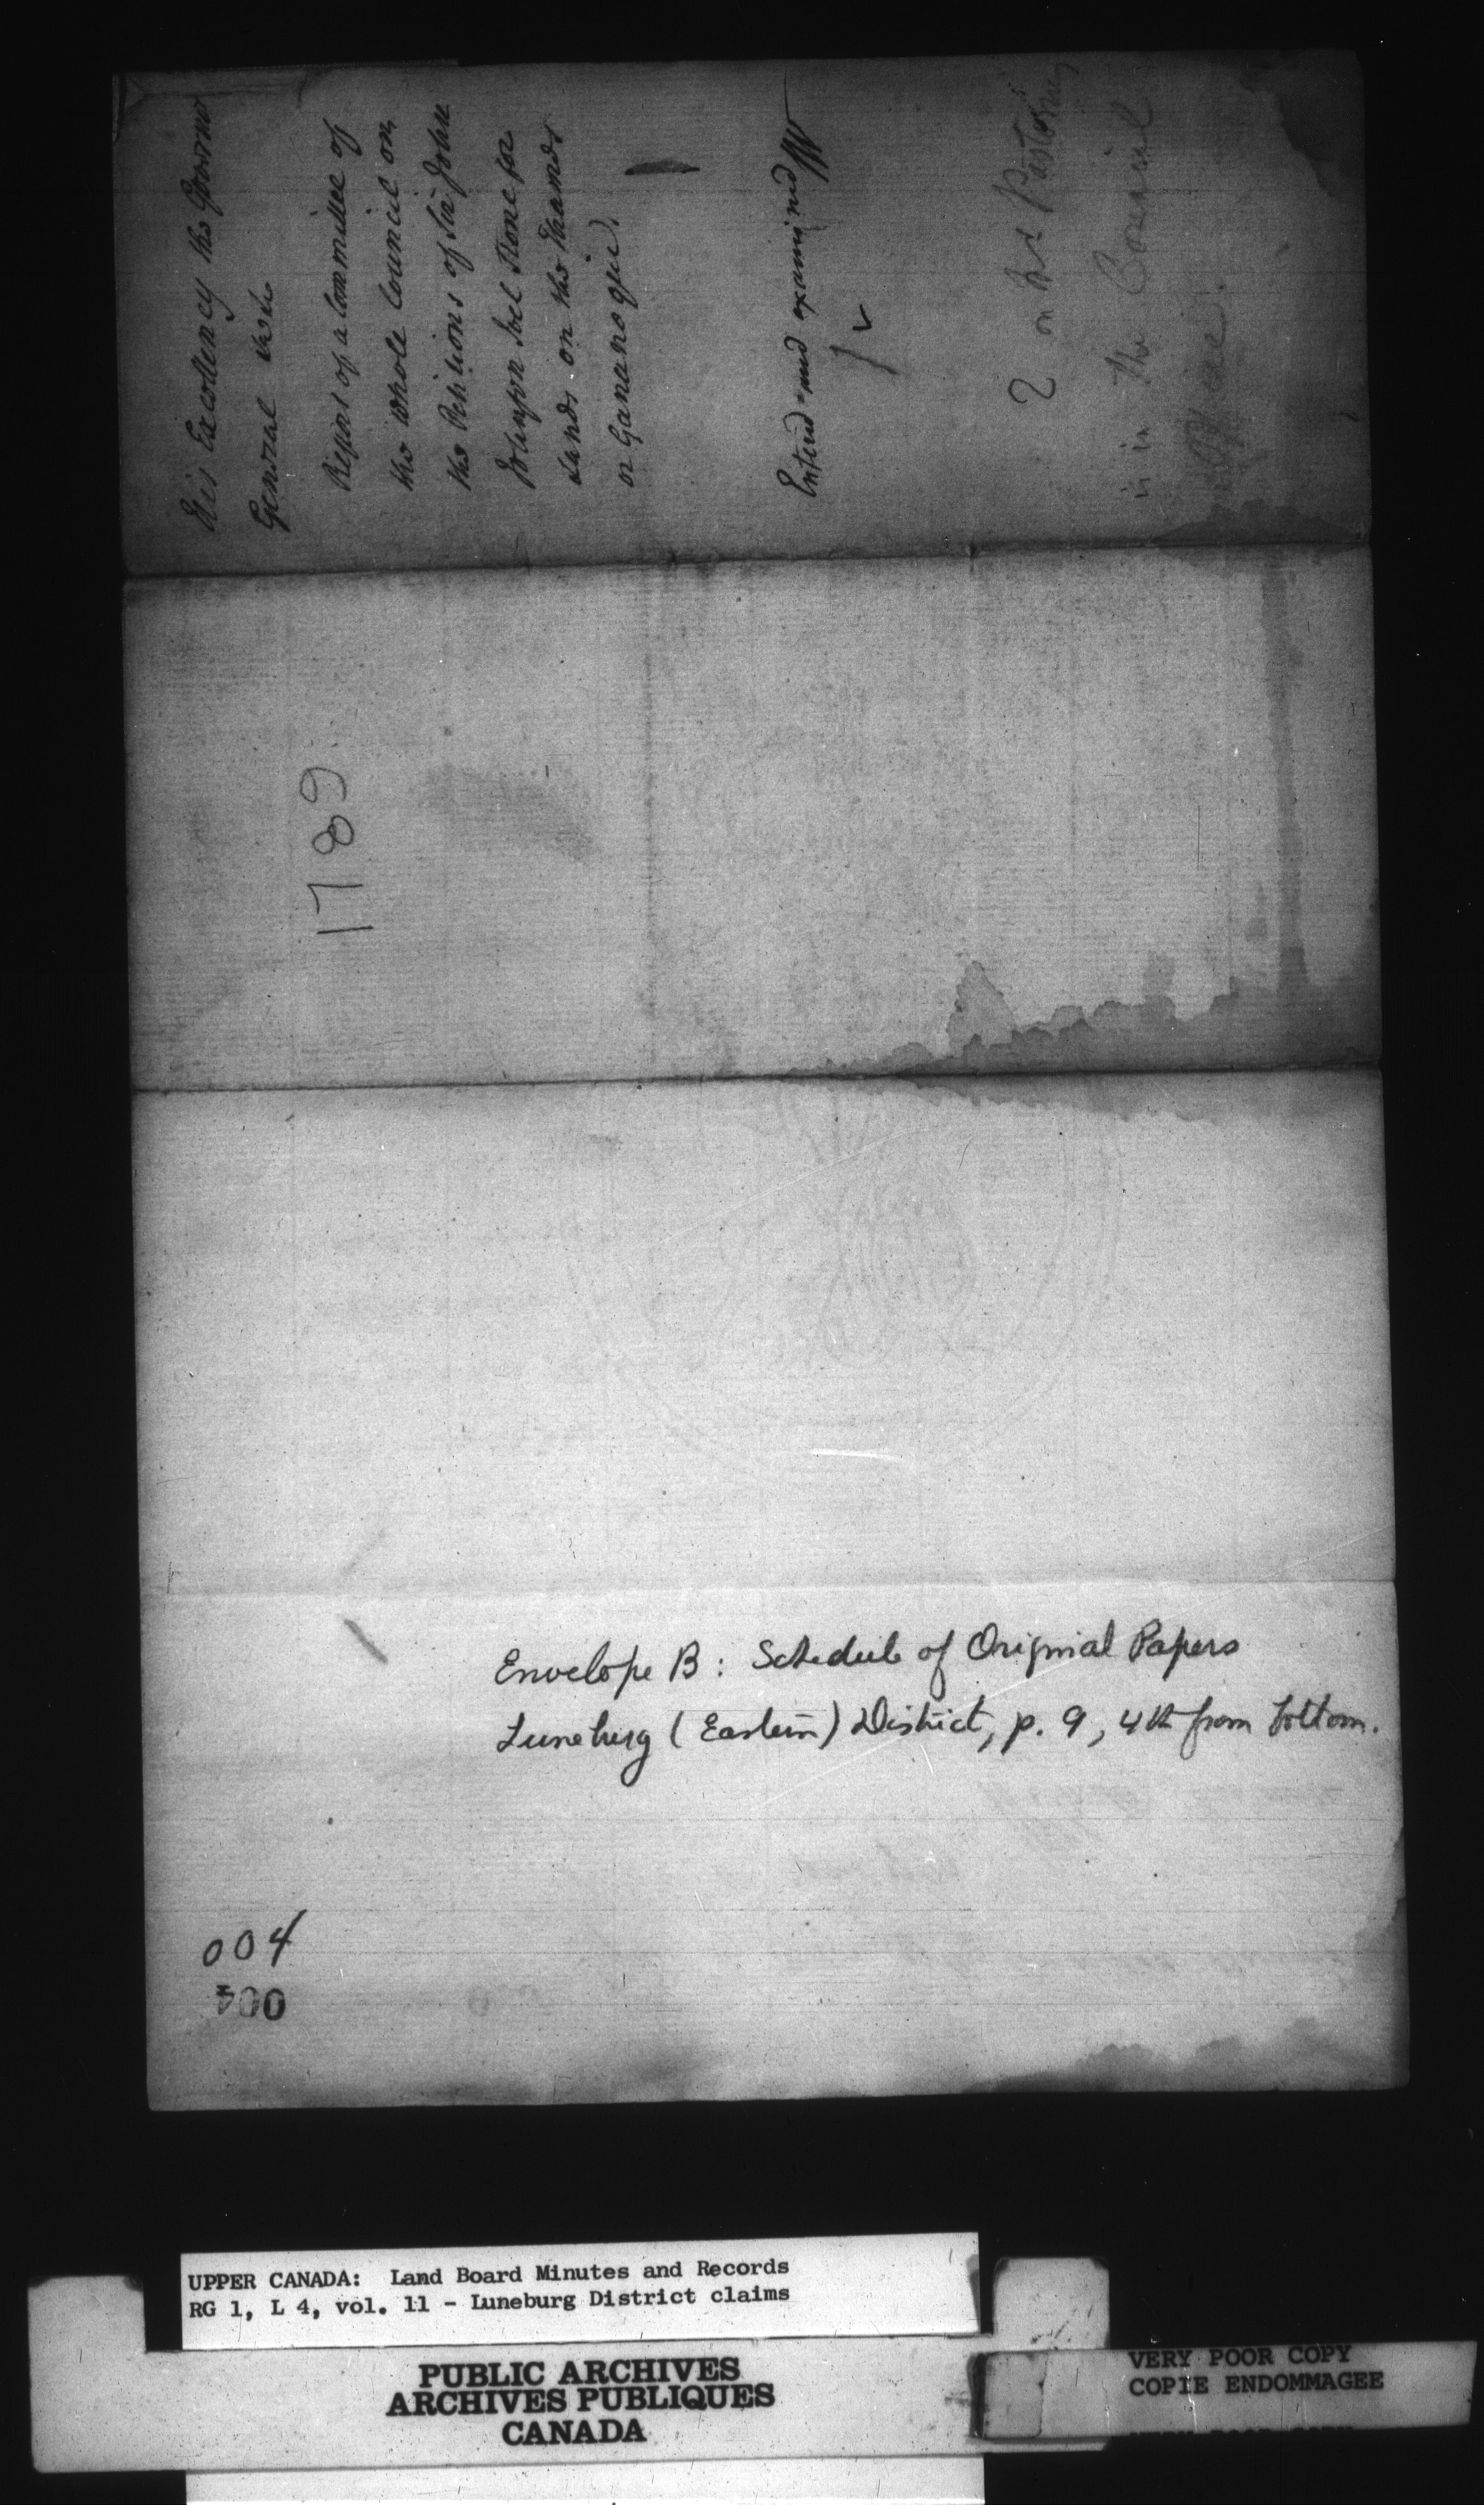 His Excellency the Governor
General with
Report of a Committee of
the whole Council on
the Petitions of Sir John
Johnson Joel Stone for
Lands on the Thames
or Gananoqui.
Entered and examined
2 on
is in the Council
Office.
1789
Envelope B: Schedule of Original Papers
Luneburg (Eastern) District, p. 9, 4th from bottom.
004
004
UPPER CANADA: Land Board Minutes and Records
RG 1, L 4, vol. 11 - Luneburg District claims
PUBLIC ARCHIVES
ARCHIVES PUBLIQUES
CANADA
VERY POOR COPY
COPIE ENDOMMAGEE